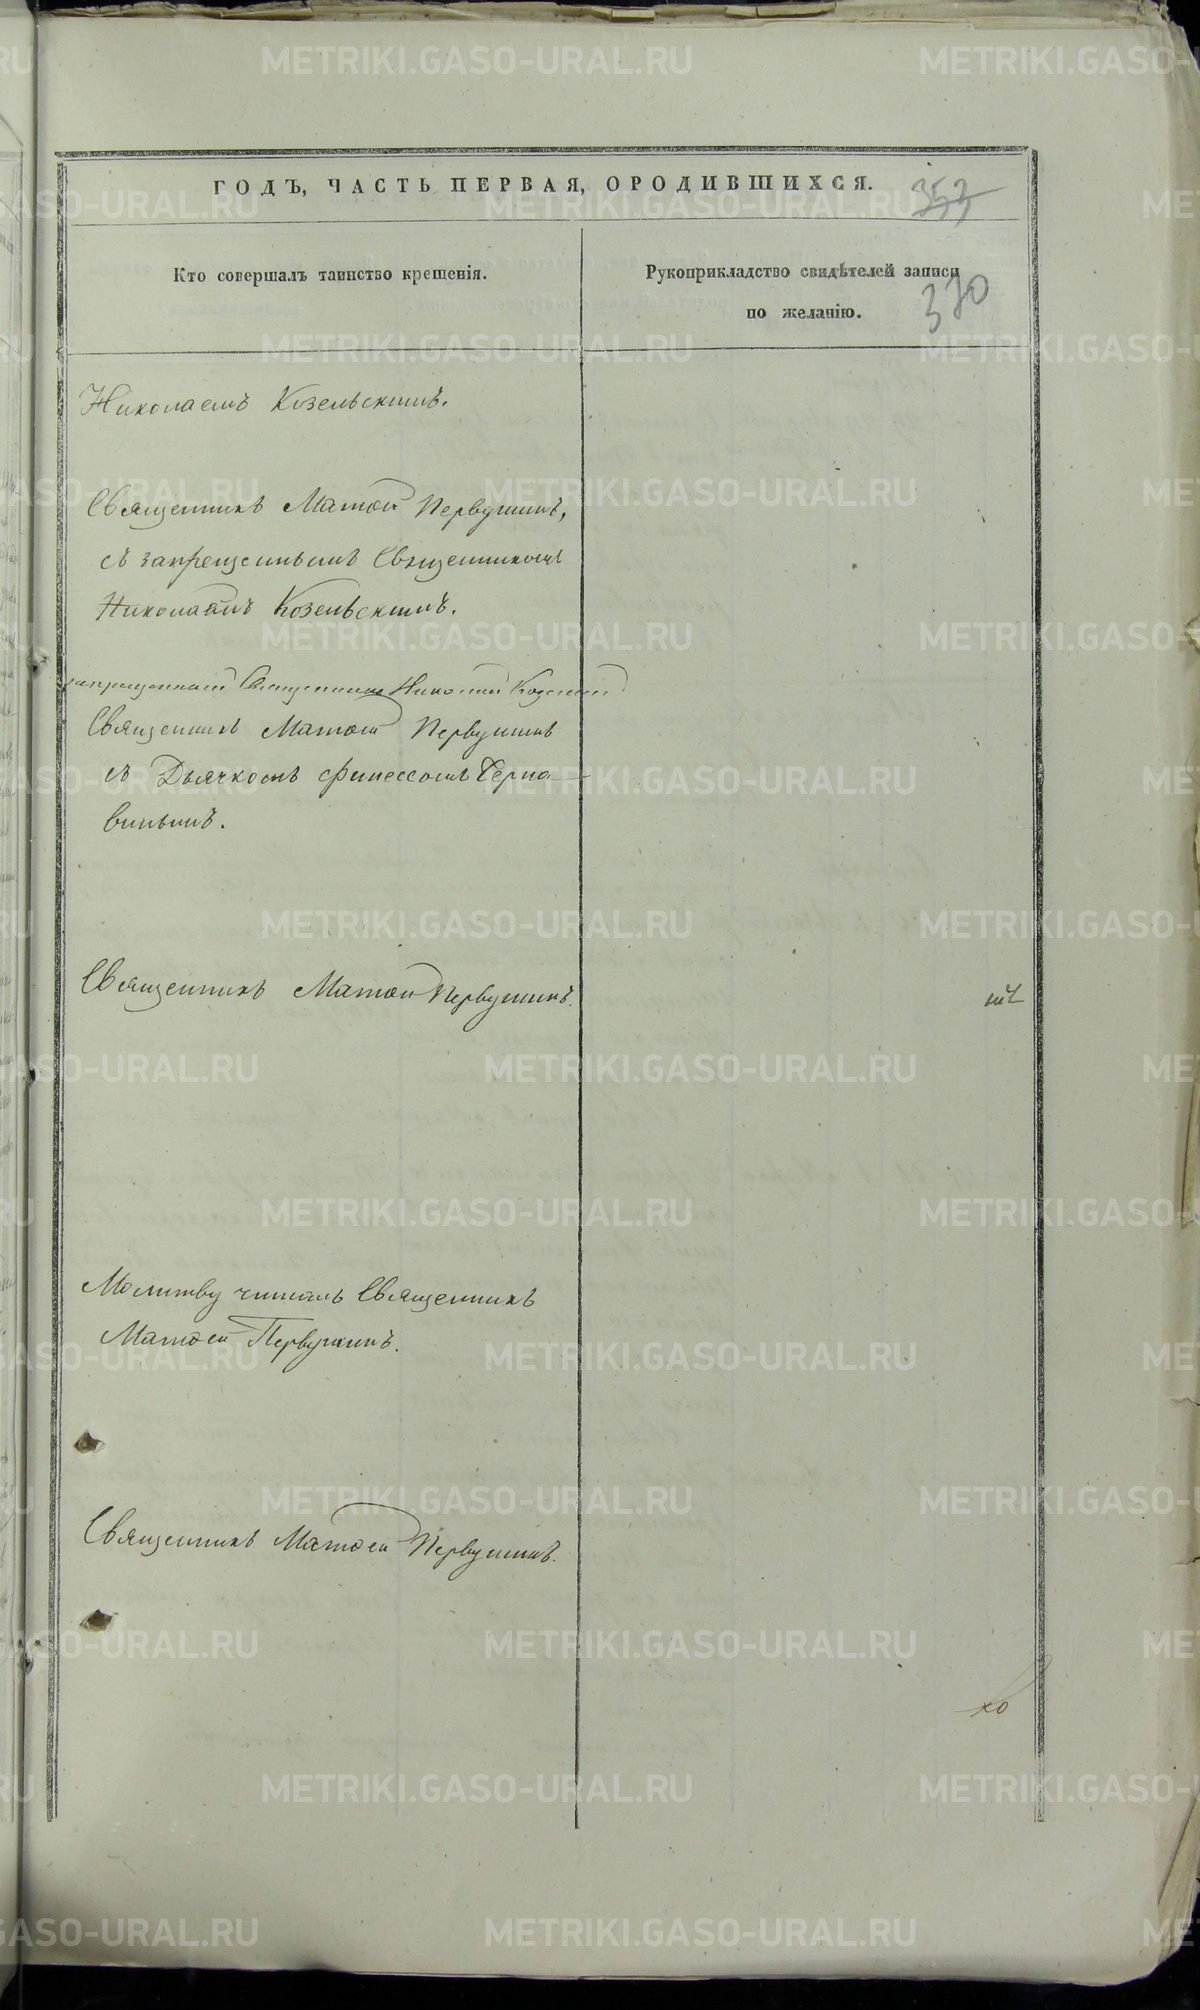 ГОДЪ, ЧАСТЬ ПЕРВАЯ, О РОДИВШИХСЯ.
353
Кто совершалъ таинство крещенія.
Рукоприкладство свидѣтелей записи
по желанію.
370
Николаемъ Козельскимъ.
Священникъ Матѳей Первушинъ,
съ запрещеннымъ Священникомъ
Николаемъ Козельскимъ.
запрещенный Священникъ Николай
Священникъ Матѳей Первушинъ
съ Дьячкомъ Финессомъ Черно
виннымъ.
Священникъ Матѳей Первушинъ.
Молитву читалъ Священникъ
Матѳей Первушинъ.
Священникъ Матѳей Первушинъ.
METRIKI.GASO-URAL.RU